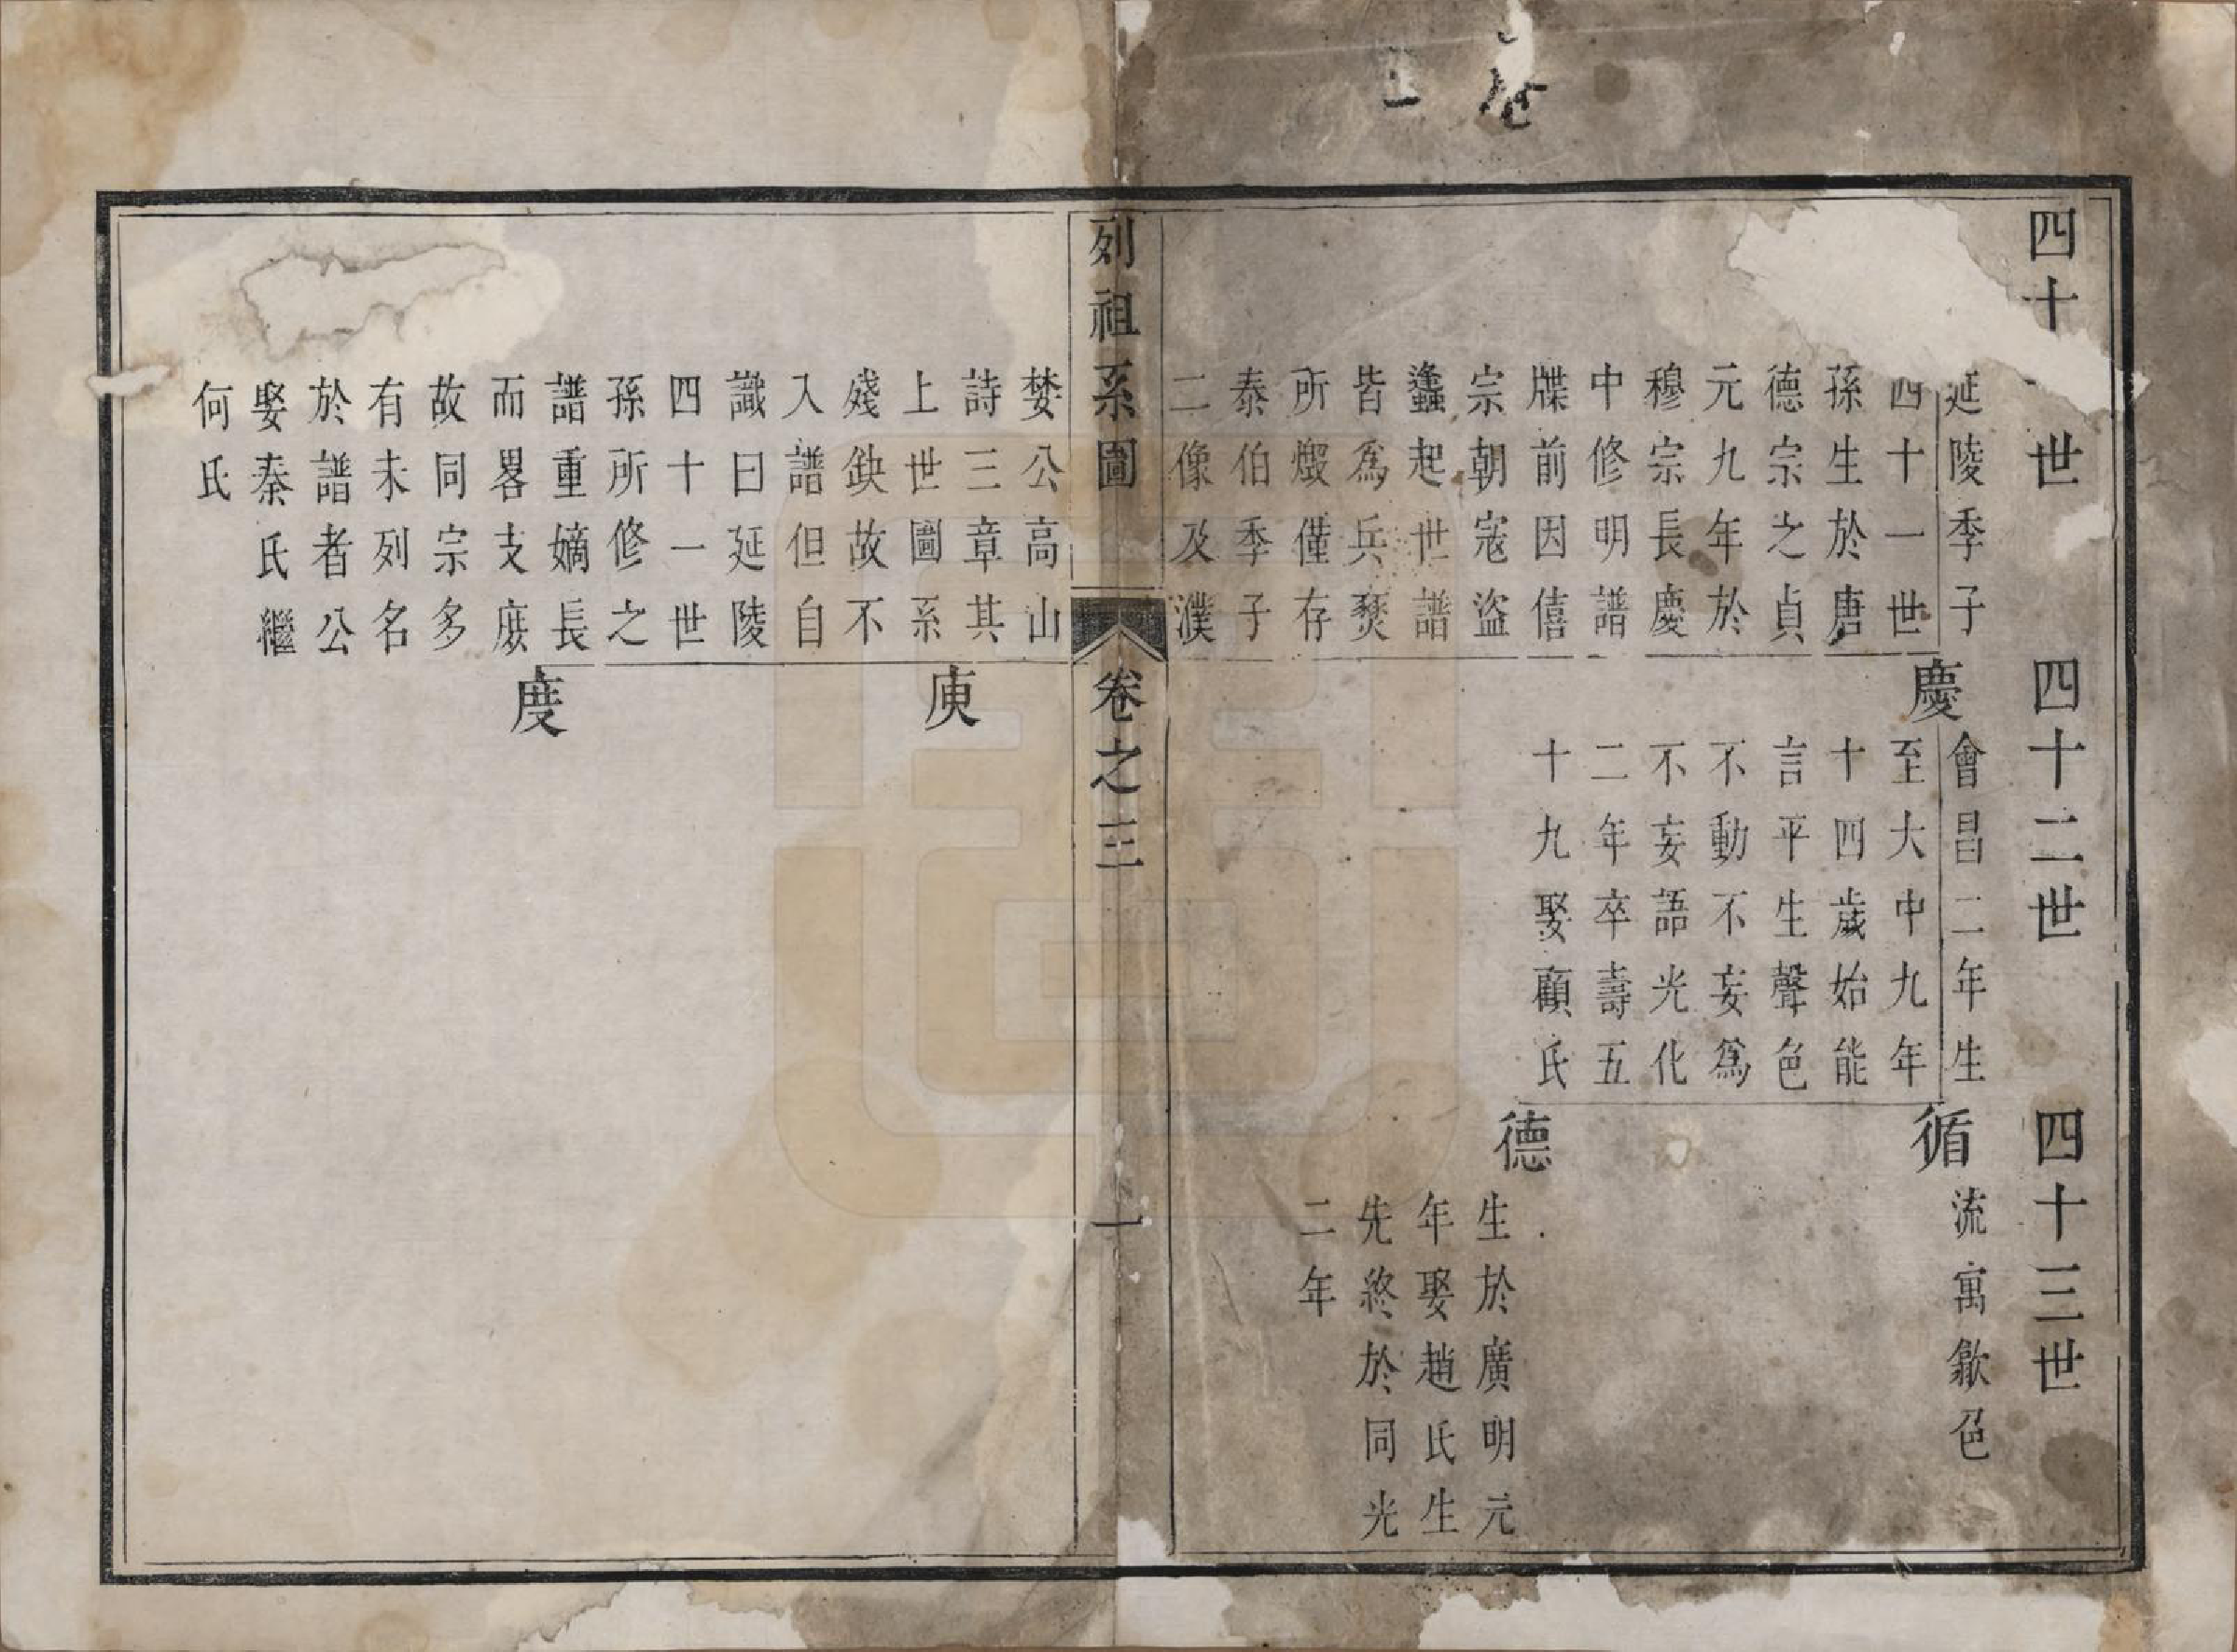 四十 世
四十二世
四十三世
延陵季子
四十一世
孫生於唐
德宗之貞
元九年於
穆宗長慶
中修明譜
牒前因僖
宗朝寇盜
蠭起世譜
皆為兵燹
所燬僅存
泰伯季子
二像及濮
婪公高山
詩三章其
上世圖系
殘缺故不
入譜但自
識曰延陵
四十一世
孫所修之
譜重嫡長
而畧支庶
故同宗多
有未列名
於譜者公
娶秦氏繼
何氏
慶
會昌二年生
至大中九年
十四歲始能
言平生聲色
不動不妄為
不妄語光化
二年卒壽五
十九娶顧氏
庾
度
循
流寓歙邑
德
生於廣明元
年娶趙氏生
先終於同光
二年
列祖系圖
卷之三
一